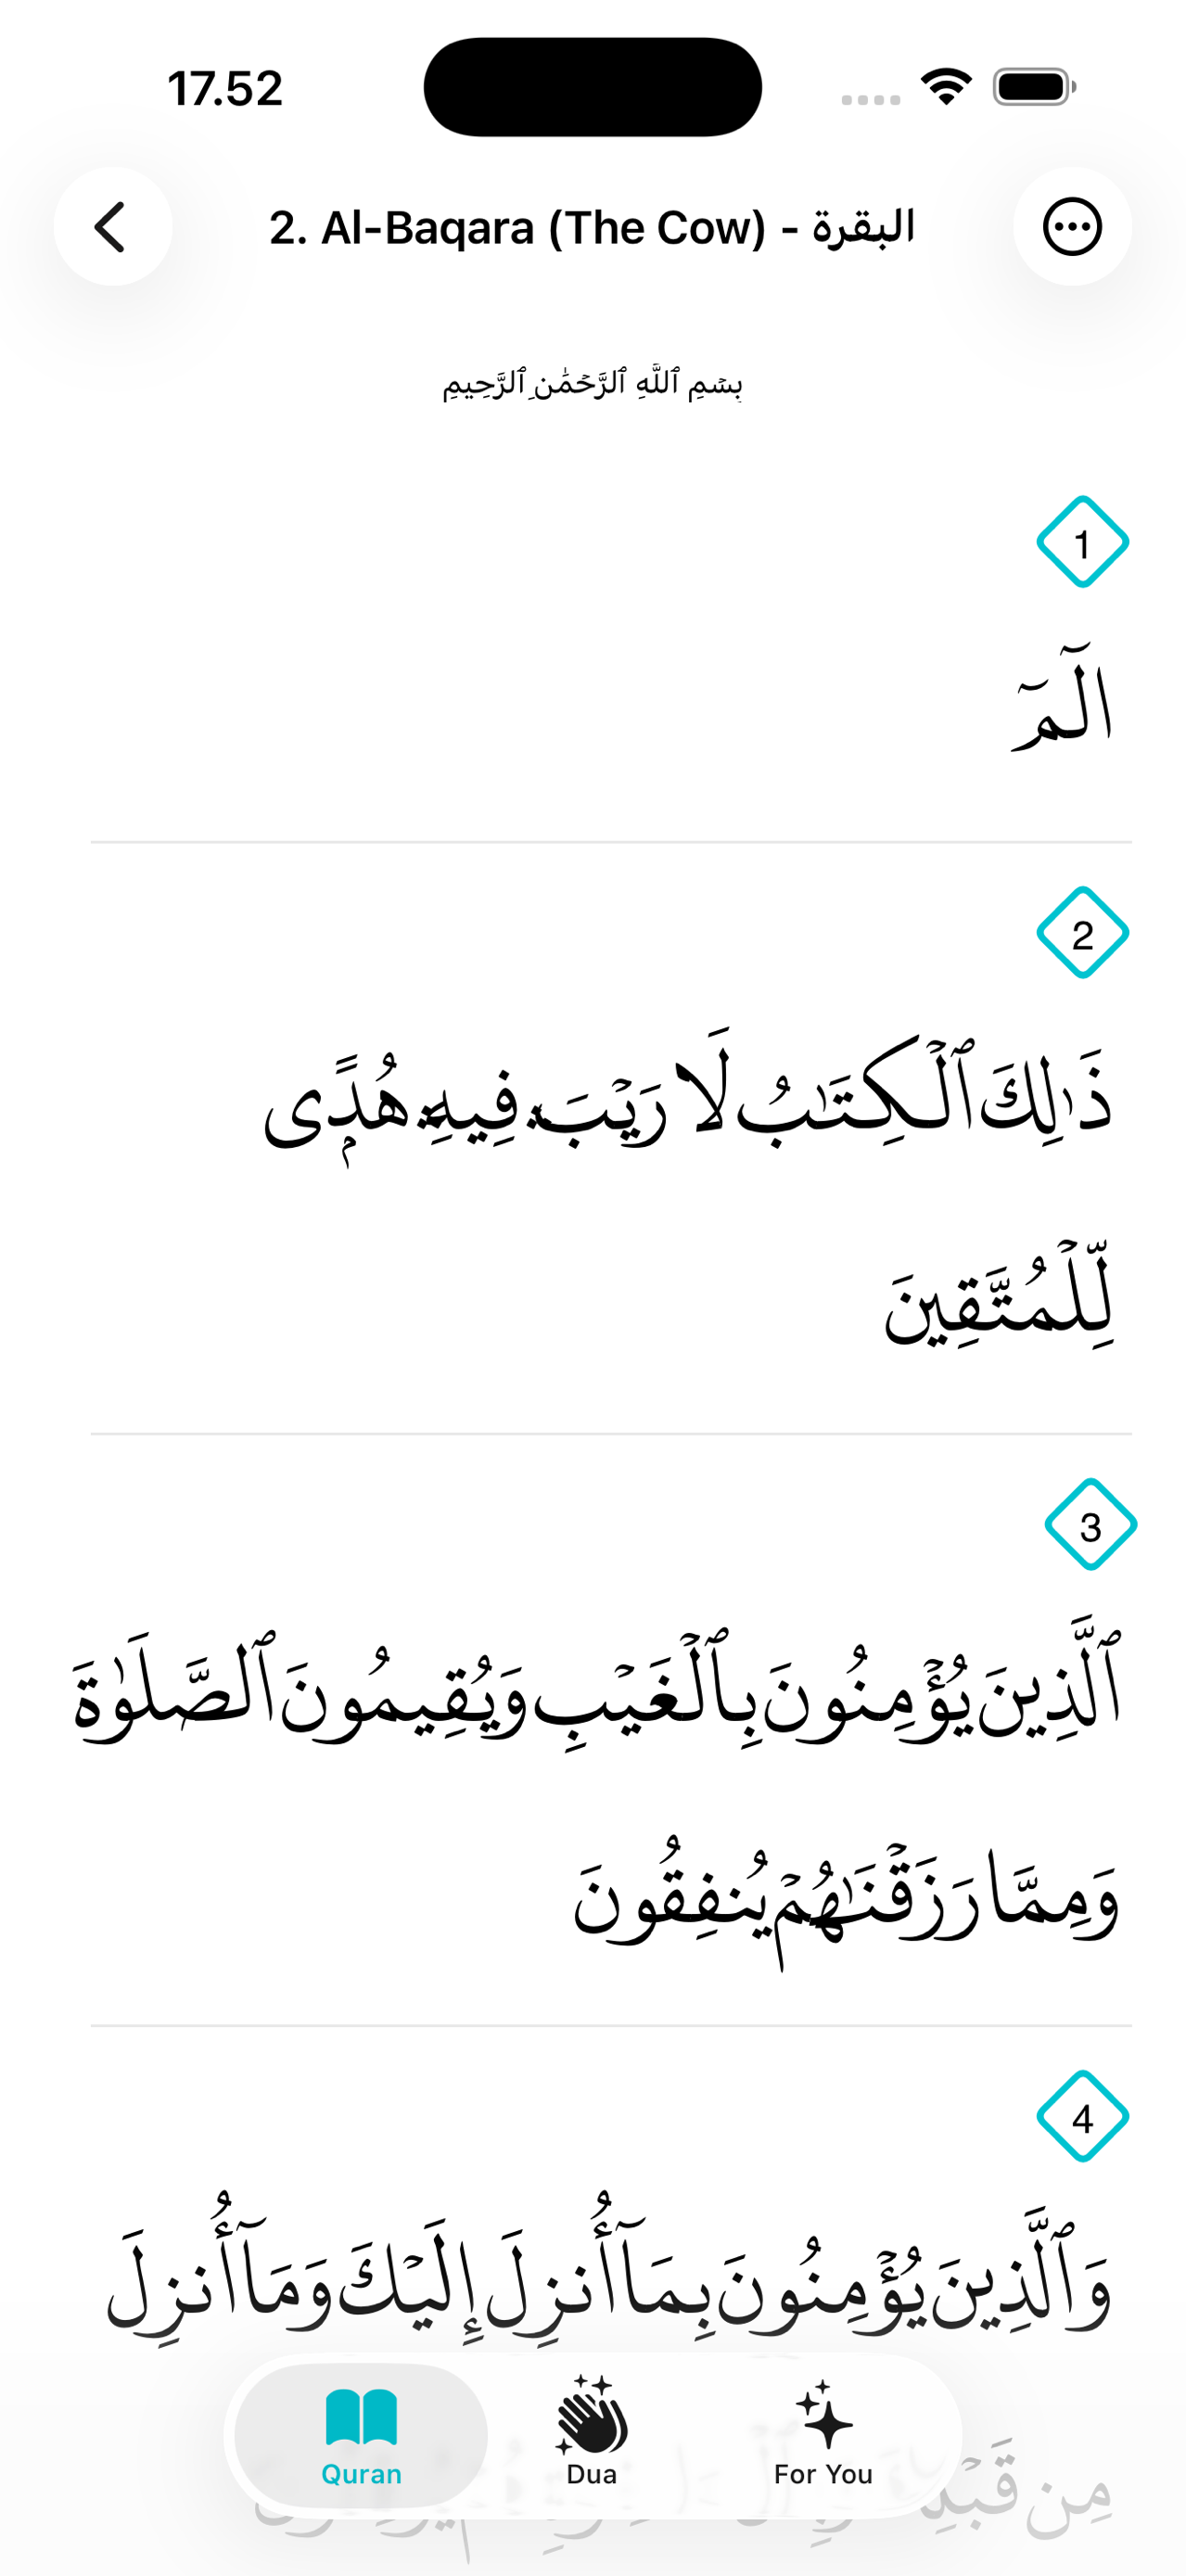 17.52
2. Al-Baqara (The Cow) - البقرة
بِسۡمِ ٱللَّهِ ٱلرَّحۡمَٰنِ ٱلرَّحِيمِ
1
الٓمٓ
2
ذَٰلِكَ ٱلۡكِتَٰبُ لَا رَيۡبَۛ فِيهِۛ هُدٗى
لِّلۡمُتَّقِينَ
3
ٱلَّذِينَ يُؤۡمِنُونَ بِٱلۡغَيۡبِ وَيُقِيمُونَ ٱلصَّلَوٰةَ
وَمِمَّا رَزَقۡنَٰهُمۡ يُنفِقُونَ
4
وَٱلَّذِينَ يُؤۡمِنُونَ بِمَآ أُنزِلَ إِلَيۡكَ وَمَآ أُنزِلَ
مِن
Quran
Dua
For You